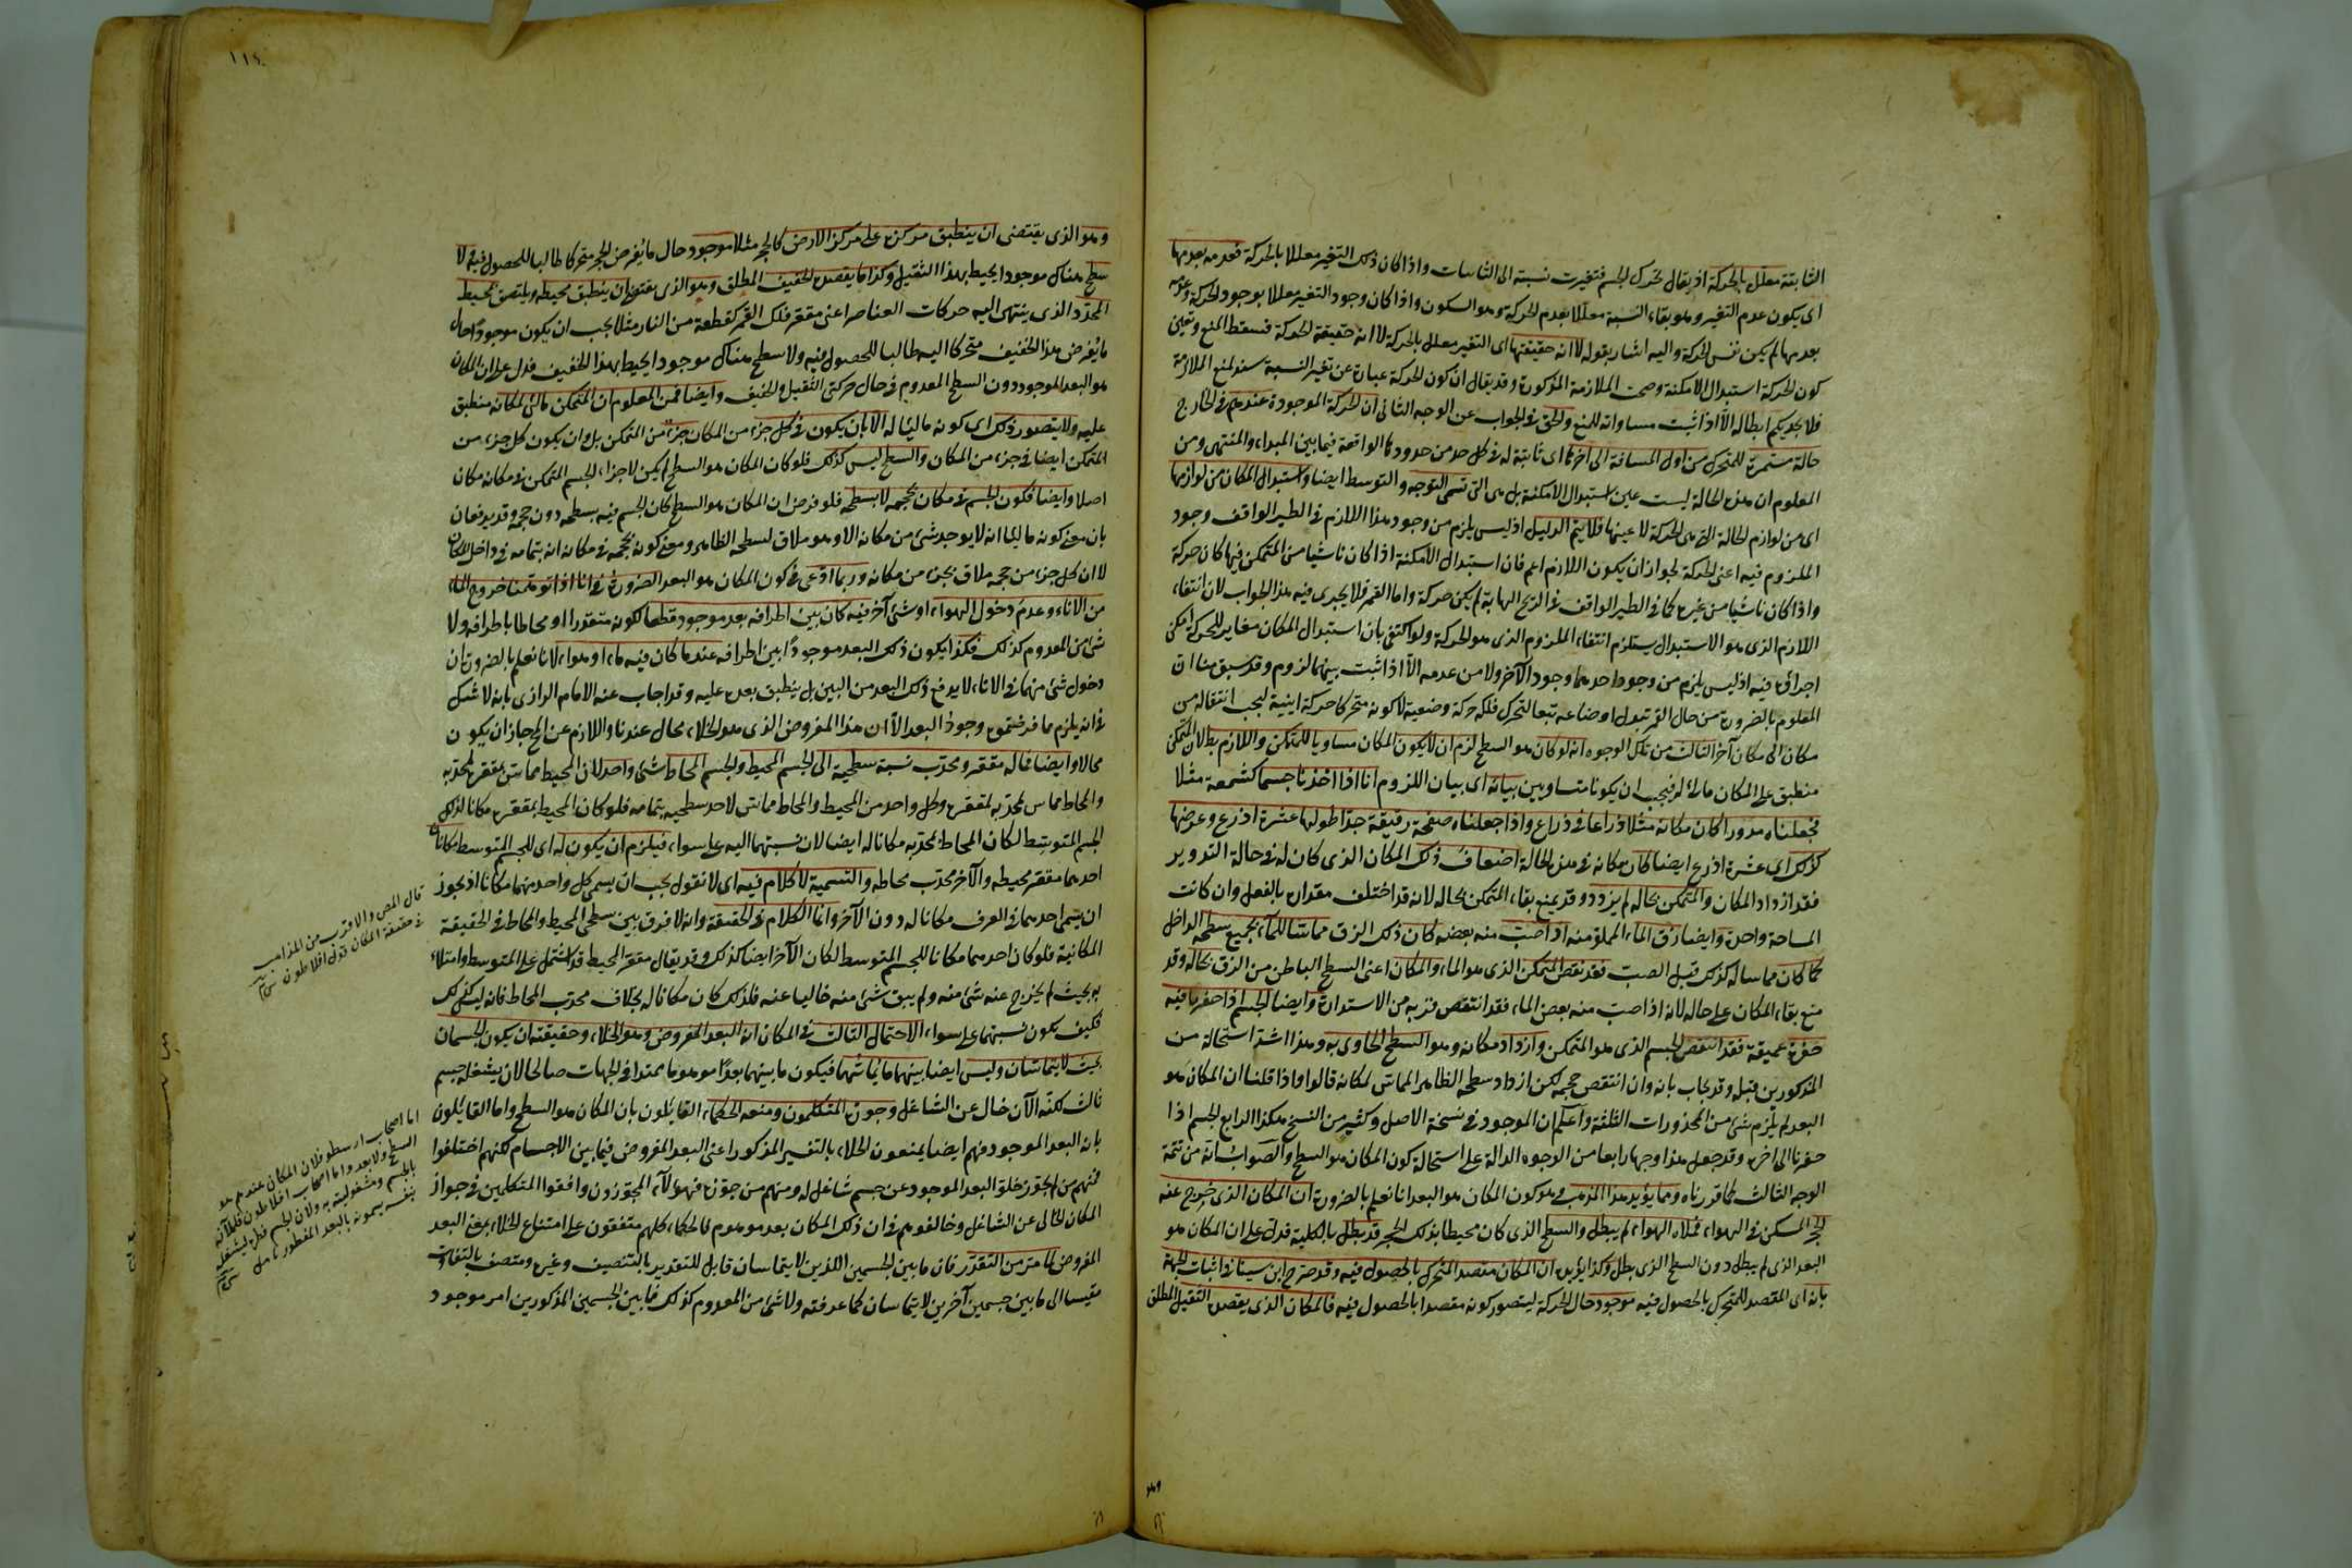 الثابتة معلل بالحركة اذ يقال تحرك الجسم فتغيرت نسبته الى الثابتات واذا كان ذلك التغير معللا بالحركة فعدمه بعدمها
اى يكون عدم التغير وهو بقاء النسبة معللا بعدم الحركة وهو السكون واذا كان وجود التغير معللا بوجود الحركة وعدمه
بعدمها لم يكن نفس الحركة واليه اشار بقوله لا انه حقيقتها اى التغير معلل بالحركة لا انه حقيقة الحركة فسقط المنع وتعين
كون الحركة استبدال الامكنة وصحت الملازمة المذكورة وقد يقال ان كون الحركة عبارة عن تغير النسبة سند لمنع الملازمة
فلا يجديكم ابطاله الا اذا ثبت مساواته للمنع والحق فى الجواب عن الوجه الثانى ان الحركة الموجودة عندهم فى الخارج
حالة مستمرة للمتحرك من اول المسافة الى آخرها اى ثابتة له فى كل حد من حدودها الواقعة فيما بين المبداء والمنتهى ومن
المعلوم ان هذه الحالة ليست عين استبدال الامكنة بل هى التى تسمى التوجه والتوسط ايضا واستبدال المكان من لوازمها
اى من لوازم الحالة التى هى الحركة لا عينها فلا يتم الدليل اذ ليس يلزم من وجود هذا اللازم فى الطير الواقف وجود
الملزوم فيه اعنى الحركة لجواز ان يكون اللازم اعم فان استبدال الامكنة اذا كان ناشيا من المتمكن فيها كان حركة
واذا كان ناشيا من غيره كما فى الطير الواقف فى الريح الهابة لم يكن حركة واما القمر فلا يجدى فيه هذا الجواب لان انتفاء
اللازم الذى هو الاستبدال يستلزم انتفاء الملزوم الذى هو الحركة ولو اكتفى بان استبدال المكان مغاير للحركة امكن
اجراؤه فيه اذ ليس يلزم من وجود احدهما وجود الآخر ولا من عدمه الا اذا ثبت بينهما لزوم وقد سبق منا ان
المعلوم بالضرورة من حال القمر تبدل اوضاعه تبعا لتحرك فلكه حركة وضعية لا كونه متحركا حركة اينية ليجب انتقاله من
مكان الى مكان آخر الثالث من تلك الوجوه انه لو كان هو السطح لزم ان لا يكون المكان مساويا للمتمكن واللازم بط لان المتمكن
منطبق على المكان مالئ له فيجب ان يكونا متساويين بيانه اى بيان اللزوم انا اذا اخذنا جسما كشمعة مثلا
فجعلناه مدورا كان مكانه مثلا ذراعا فى ذراع واذا جعلناه صفحة رقيقة جدا طولها عشرة اذرع وعرضها
كذلك اى عشرة اذرع ايضا كان مكانه فى هذه الحالة اضعاف ذلك المكان الذى كان له فى حالة التدوير
فقد ازداد المكان والمتمكن بحاله لم يزدد وقد يمنع بقاء المتمكن بحاله لانه قد اختلف مقداره بالفعل وان كانت
المساحة واحدة وايضا زق الماء المملو منه اذا صب منه بعضه كان ذلك الزق مماسا للماء بجميع سطحه الداخل
كما كان مماسا له كذلك قبل الصب فقد نقص المتمكن الذى هو الماء والمكان اعنى السطح الباطن من الزق بحاله وقد
منع بقاء المكان على حاله لانه اذا صب منه بعض الماء فقد انتقص قربه من الاستدارة وايضا الجسم اذا حفرنا فيه
حفرة عميقة فقد انتقص الجسم الذى هو المتمكن وازداد مكانه وهو السطح الحاوى به وهذا اشد استحالة من
المذكورين قبله وقد يجاب بانه وان انتقص حجمه لكن ازداد سطحه الظاهر المماس لمكانه قالوا واذا قلنا ان المكان هو
البعد لم يلزم شئ من المحذورات الثلثة واعلم ان الموجود فى نسخة الاصل وكثير من النسخ هكذا الرابع الجسم اذا
حفرنا الى آخره وقد جعل هذا وجها رابعا من الوجوه الدالة على استحالة كون المكان هو السطح والصواب انه من تتمة
الوجه الثالث كما قررناه ومما يؤيد هذا المذهب وهو كون المكان هو البعد انا نعلم بالضرورة ان المكان الذى خرج عنه
الحجر المسكن فى الهواء فملاه الهواء لم يبطل والسطح الذى كان محيطا بذلك الحجر قد بطل بالكلية فدل على ان المكان هو
البعد الذى لم يبطل دون السطح الذى بطل وكذا يؤيده ان المكان مقصد المتحرك بالحصول فيه وقد صرح ابن سينا فى اثبات الجهة
بانه اى المقصد للمتحرك بالحصول فيه موجود حال الحركة ليتصور كونه مقصدا بالحصول فيه فالمكان الذى يقصده الثقيل المطلق
وهو
١١٤
وهو الذى يقتضى ان ينطبق مركزه على مركز الارض كالحجر مثلا موجود حال ما يفرض الحجر متحركا طالبا للحصول فيه ولا
سطح هناك موجودا يحيط بهذا الثقيل وكذا ما يقصده الخفيف المطلق وهو الذى يقتضى ان ينطبق محيطه ويلتصق بمحيط
المحدد الذى ينتهى اليه حركات العناصر اعنى مقعر فلك القمر كقطعة من النار مثلا يجب ان يكون موجودا حال
ما يفرض هذا الخفيف متحركا اليه طالبا للحصول فيه ولا سطح هناك موجودا يحيط بهذا الخفيف فدل على ان المكان
هو البعد الموجود دون السطح المعدوم فى حال حركتى الثقيل والخفيف وايضا فمن المعلوم ان المتمكن مالئ لمكانه منطبق
عليه ولا يتصور ذلك اى كونه مالئا له الا بان يكون فى كل جزء من المكان جزء من المتمكن بل وان يكون كل جزء من
المتمكن ايضا فى جزء من المكان والسطح ليس كذلك فلو كان المكان هو السطح لم يكن لاجزاء الجسم المتمكن فى مكانه مكان
اصلا وايضا فكون الجسم فى مكان بحجمه لا بسطحه فلو فرض ان المكان هو السطح كان الجسم فيه بسطحه دون حجمه وقد يدفعان
بان معنى كونه مالئا انه لا يوجد شئ من مكانه الا وهو ملاق لسطحه الظاهر ومعنى كونه بحجمه فى مكانه انه بتمامه فى داخل المكان
لا ان كل جزء من حجمه ملاق بجزء من مكانه وربما ادعى فى كون المكان هو البعد الضرورة فى انا اذا توهمنا خروج الماء
من الاناء وعدم دخول الهواء او شئ آخر فيه كان بين اطرافه بعد موجود قطعا لكونه متقدرا او محاطا باطرافه ولا
شئ من المعدوم كذلك فكذا يكون ذلك البعد موجودا بين اطرافه عند ما كان فيه ماء او هواء لانا نعلم بالضرورة ان
دخول شئ منهما فى الاناء لا يدفع ذلك البعد من البين بل ينطبق بعده عليه وقد اجاب عنه الامام الرازى بانه لا شك
فى انه يلزم مما فرضتموه وجود البعد الا ان هذا المفروض الذى هو الخلاء محال عندنا واللازم عن المح جاز ان يكون
محالا وايضا فانه مقعر ومحدب نسبة سطحية الى الجسم المحيط والجسم المحاط شئ واحد لان المحيط مماس بمقعره لمحدبه
والمحاط مماس بمحدبه لمقعره وكل واحد من المحيط والمحاط مماس لاحد سطحيه بتمامه فلو كان المحيط بمقعره مكانا لذلك
الجسم المتوسط لكان المحاط بمحدبه مكانا له ايضا لان نسبتهما اليه على سواء فيلزم ان يكون له اى للجسم المتوسط مكانان
احدهما مقعر محيطه والآخر محدب محاطه والتسمية لا كلام فيه اى لا نقول يجب ان يسمى كل واحد منهما مكانا اذ يجوز
ان يسمى احدهما فى العرف مكانا له دون الآخر وانما الكلام فى الحقيقة وانه لا فرق بين سطحى المحيط والمحاط فى الحقيقة
المكانية فلو كان احدهما مكانا للجسم المتوسط لكان الآخر ايضا كذلك وقد يقال مقعر المحيط قد اشتمل على المتوسط وامتلاء
به بحيث لم يخرج عنه شئ منه ولم يبق شئ منه خاليا عنه فلذلك كان مكانا له بخلاف محدب المحاط فانه ليس كذلك
فكيف يكون نسبتهما على سواء الاحتمال الثالث فى المكان انه البعد المفروض وهو الخلاء وحقيقته ان يكون الجسمان
بحيث لا يتماسان وليس ايضا بينهما ما يماسهما فيكون ما بينهما بعدا موهوما ممتدا فى الجهات صالحا لان يشغله جسم
ثالث لكنه الآن خال عن الشاغل وجوزه المتكلمون ومنعه الحكماء القائلون بان المكان هو السطح واما القائلون
بانه البعد الموجود فهم ايضا يمنعون الخلاء بالتفسير المذكور اعنى البعد المفروض فيما بين الاجسام لكنهم اختلفوا
فمنهم من لم يجوز خلو البعد الموجود عن جسم شاغل له ومنهم من جوزه فهؤلاء المجوزون وافقوا المتكلمين فى جواز
المكان الخالى عن الشاغل وخالفوهم فى ان ذلك المكان بعد موهوم فالحكماء كلهم متفقون على امتناع الخلاء بمعنى البعد
المفروض لما مر من التقدر فان ما بين الجسمين اللذين لا يتماسان قابل للتقدير بالتنصيف وغيره ومتصف بالتفاوت
مقيسا الى ما بين جسمين آخرين لا يتماسان كما عرفته ولا شئ من المعدوم كذلك فما بين الجسمين المذكورين امر موجود
قال المص والاقرب من المذاهب
فى حقيقة المكان قول افلاطون
اما اصحاب ارسطو فلان المكان عندهم هو
السطح ولا بعد واما اصحاب افلاطون فلانه
بالجسم ومشغوليته به ولان الجسم
بنفسه يسمونه بالبعد المفطور تامل